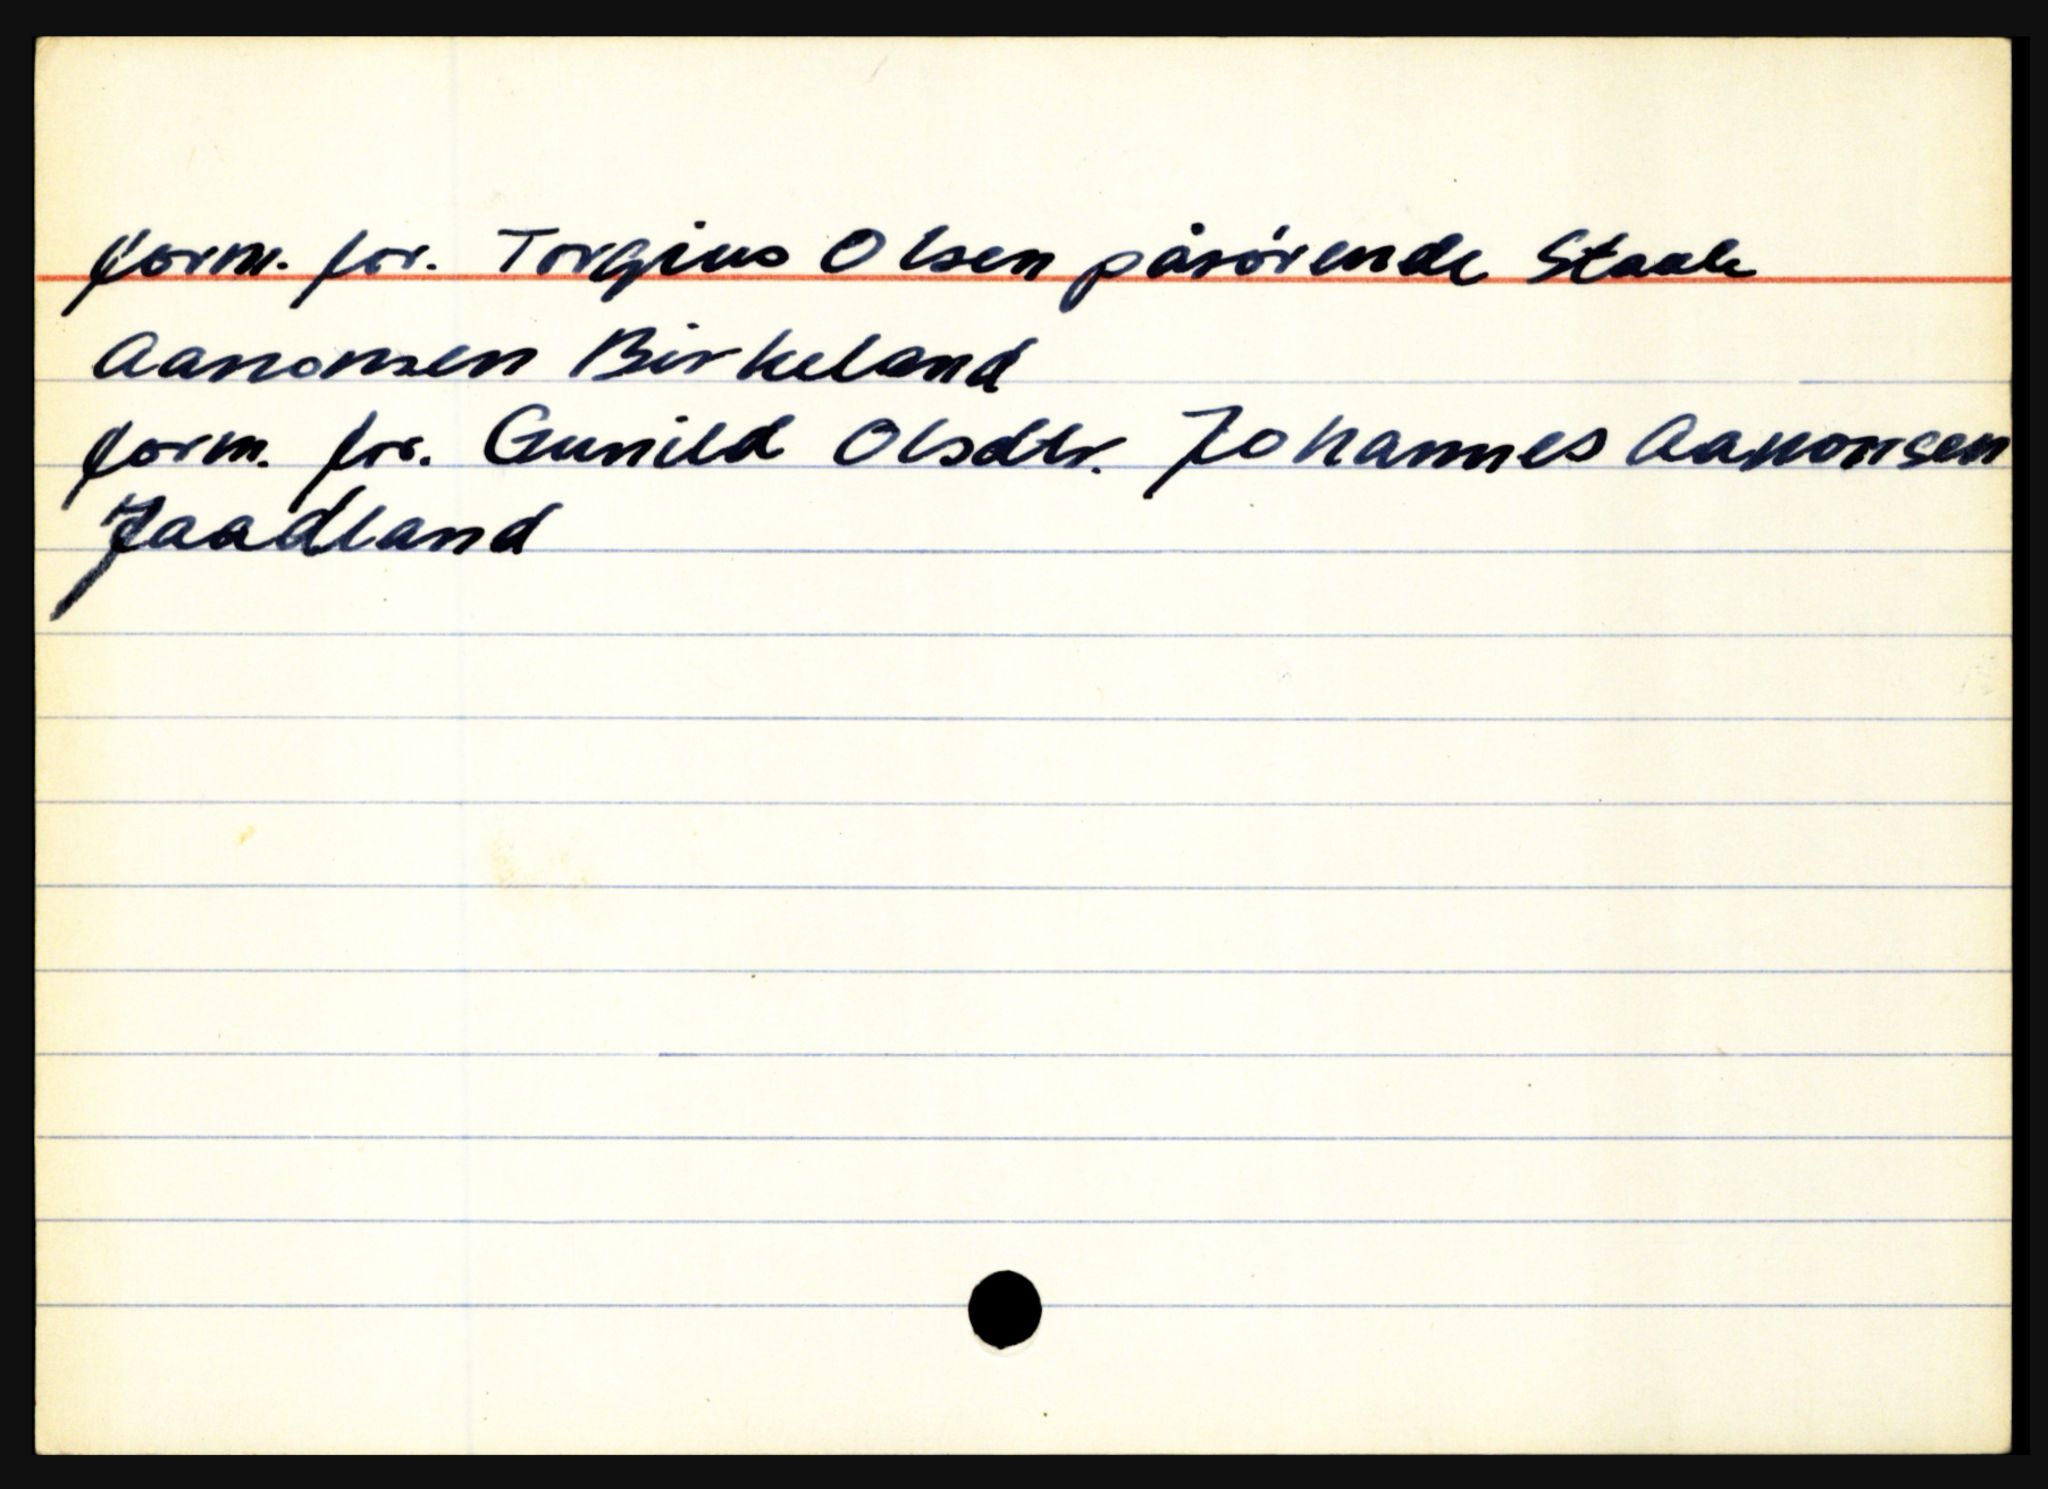 form. for. Torgius Olsen pårörende Staale
Aanonsen Birkeland
form. for. Gunild Olsdtr. Johannes Aanonsen
Jaadland